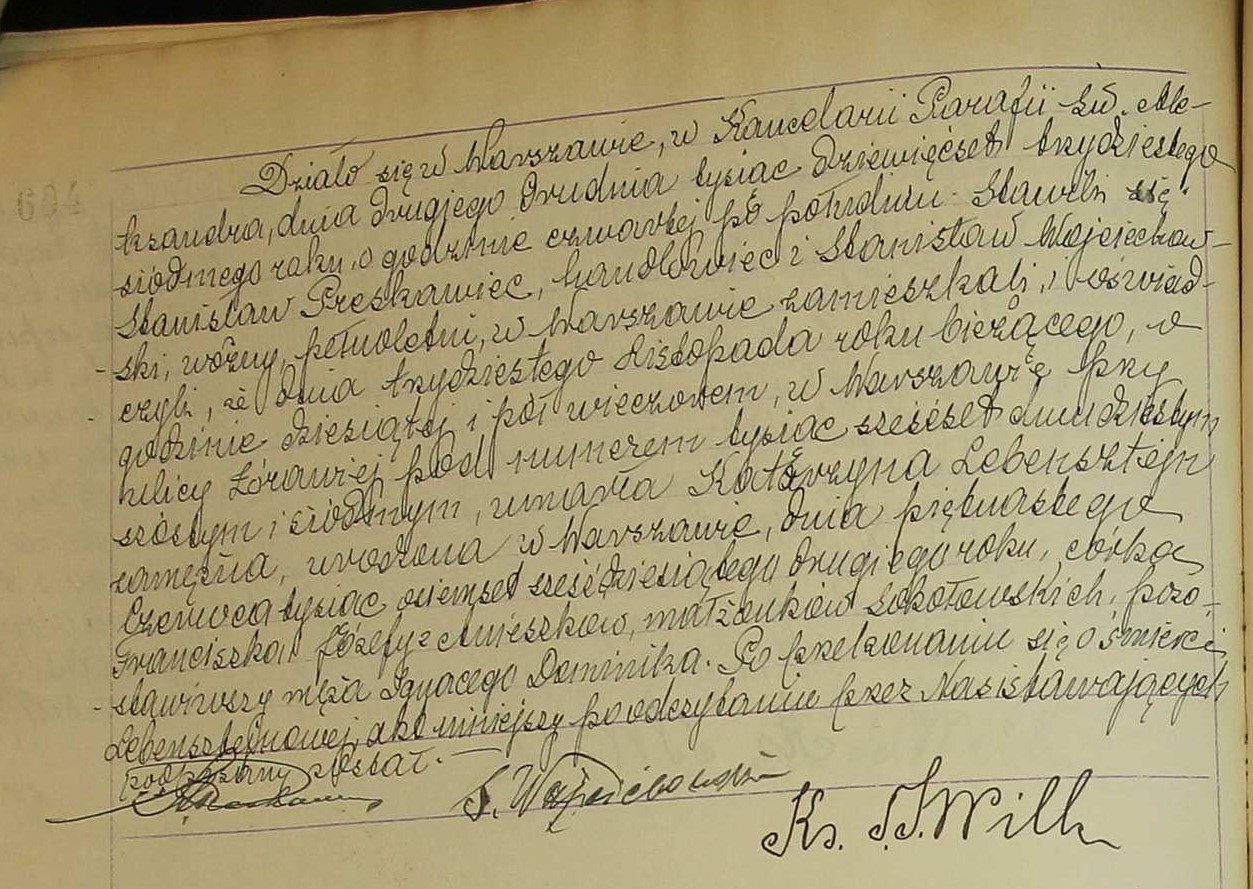 Działo się w Warszawie, w Kancelarii Parafii św. Ale-
ksandra, dnia drugiego Grudnia tysiąc dziewięćset trzydziestego
siódmego roku, o godzinie czwartej po południu. Stawili się:
Stanisław Pieskawiec, handlowiec i Stanisław Wojciechow-
ski, woźny, pełnoletni, w Warszawie zamieszkali, i oświad-
czyli, że dnia trzydziestego Listopada roku bieżącego, o
godzinie dziesiątej i pół wieczorem, w Warszawie przy
ulicy Żórawiej pod numerem tysiąc sześćset dwudziestym
szóstym i siódmym, umarła Katarzyna Lebensztejn
zamężna, urodzona w Warszawie, dnia piętnastego
Czerwca tysiąc osiemset sześćdziesiątego drugiego roku, córka
Franciszka i Józefy z Mieszków, małżonków Sokołowskich, pozo-
stawiwszy męża Ignacego Dominika. Po przekonaniu się o śmierci
Lebensztejnowej, akt niniejszy po odczytaniu przez Nas i stawających
podpisany został.
S. Wojciechowski
Ks. S. Wilk